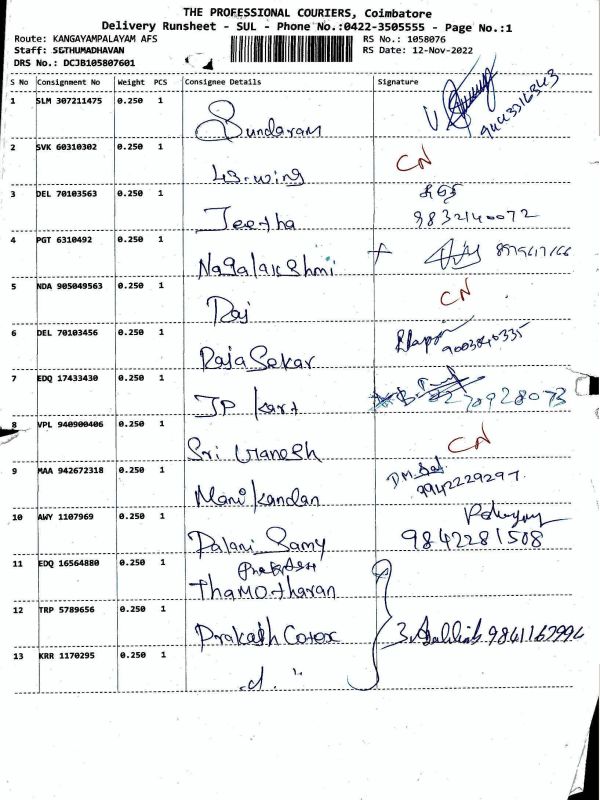 THE PROFESSIONAL COURIERS, Coimbatore
Delivery Runsheet - SUL - Phone No.:0422-3505555 - Page No.:1
Route: KANGAYAMPALAYAM AFS RS No.: 1058076
Staff: SGTHUMADHAVAN RS Date: 12-Nov-2022
DRS No.: DCJB105807601
S No Consignment No Weight PCS Consignee Details Signature
1 SLM 307211475 0.250 1 Sundaram
2 SVK 60310302 0.250 1 CN
3 DEL 70103563 0.250 1 Jeetha 9832140072
4 PGT 6310492 0.250 1 Nagalakshmi
5 NDA 905049563 0.250 1 Raj CN
6 DEL 70103456 0.250 1 RajaSekar 9003840335
7 EDQ 17433430 0.250 1 JP kart
8 VPL 940900406 0.250 1 Sri Ganesh CN
9 MAA 942672318 0.250 1 Manikandan 9942229297
10 AWY 1107969 0.250 1 Palani Samy 9842281508
11 EDQ 16564880 0.250 1 Thamotharan
12 TRP 5789656 0.250 1 Prakash Corex 9841162994
13 KRR 1170295 0.250 1 d. "